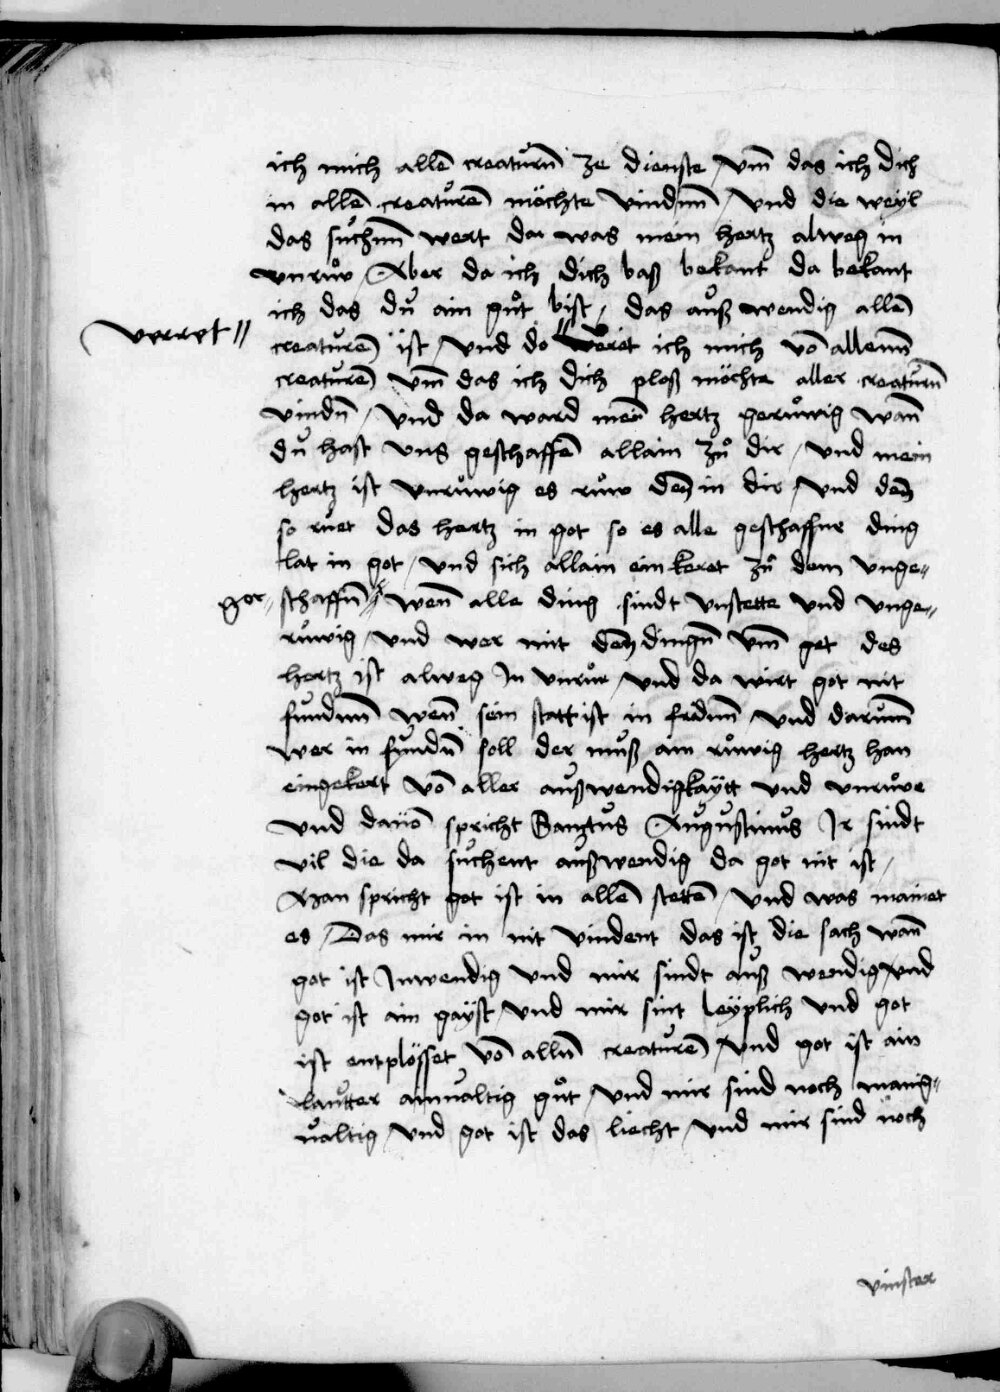 ich mich allē creaturn̄ ze dienste / vm̄ das ich dich
in allē creaturē möchte vindnn̄ / vnd die weyl
das suchnn̄ wert da was mein hertz alweg in
vnruͦw / Aber da ich dich baß bekant da bekant
ich das du ain guͦt bist / das auß wendig allē
verret //
creaturē ist / vnd do // veret ich mich vō allenn̄
creaturē vm̄ das ich dich ploß möchte aller creaturn̄
vindn̄ / vnd da ward mein hertz geruͦwig wan̄
du hast vns geschaffē allain zuͦ dir / vnd mein
hertz ist vnruͦwig es ruͦw den in dir / vnd den
so ruͦet das hertz in got so es alle geschaffne ding
lat in got / vnd sich allain ein keret zuͦ dem vnge=
ger=
schaffn̄ / wen̄ alle ding sindt vnstette vnd vnge=
ruͦwig / vnd wer mit den dingn̄ vm̄ get des
hertz ist alweg In vnruͦw / vnd da wirt got nit
fundnn̄ wen̄ sein statt ist in fridnn̄ / vnd darum̄
wer in findn̄ soll der muͦß ain ruͦwig hertz han
eingekert vō aller außwendigkaÿtt vnd vnruͦwe
vnd dauō spricht Sanctus Augustinus Ir sindt
vil die da suͦchent außwendig da got nit ist /
Man spricht got ist in allē stettē / vnd was mainet
es / Das mir in nit vindent das ist die sach wan̄
got ist Inwendig vnd mir sindt auß wendig / vnd
got ist ain gaÿst / vnd mir sint leÿplich vnd got
ist entplösset vō alln̄ creaturē / vnd got ist ain
lautter ainualtig guͦt / vnd mir sind noch manig=
ualtig / vnd got ist das liecht / vnd mir sind noch
vinster